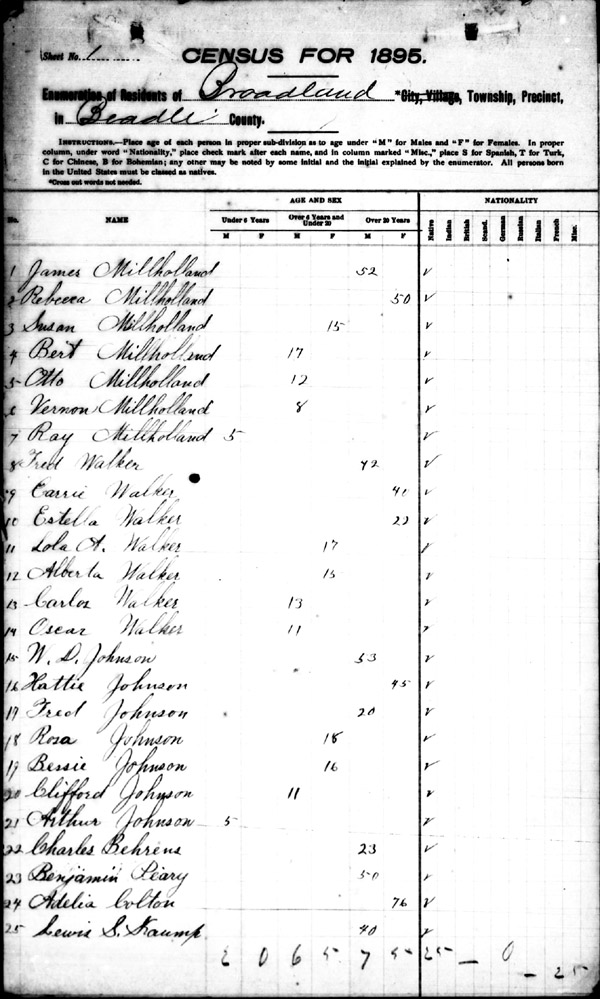 Sheet No. 1
CENSUS FOR 1895.
Enumeration of Residents of Broadland *City, Village, Township, Precinct,
in Beadle County.
INSTRUCTIONS.—Place age of each person in proper sub-division as to age under "M" for Males and "F" for Females. In proper
column, under word "Nationality," place check mark after each name, and in column marked "Misc.," place S for Spanish, T for Turk,
C for Chinese, B for Bohemian; any other may be noted by some initial and the initial explained by the enumerator. All persons born
in the United States must be classed as natives.
*Cross out words not needed.
AGE AND SEX NATIONALITY
No. NAME Under 6 Years Over 6 Years and Under 20 Over 20 Years Native Indian British Scand. German Russian Italian French Misc.
M F M F M F
1 James Millholland 52 ✓
2 Rebecca Millholland 50 ✓
3 Susan Millholland 15 ✓
4 Bert Millholland 17 ✓
5 Otto Millholland 12 ✓
6 Vernon Millholland 8 ✓
7 Ray Millholland 5 ✓
8 Fred Walker 42 ✓
9 Carrie Walker 40 ✓
10 Estella Walker 22 ✓
11 Lola A. Walker 17 ✓
12 Alberta Walker 15 ✓
13 Carlos Walker 13 ✓
14 Oscar Walker 11 ✓
15 W. D. Johnson 53 ✓
16 Hattie Johnson 45 ✓
17 Fred Johnson 20 ✓
18 Rosa Johnson 18 ✓
19 Bessie Johnson 16 ✓
20 Clifford Johnson 11 ✓
21 Arthur Johnson 5 ✓
22 Charles Behrens 23 ✓
23 Benjamin 50 ✓
24 Adelia Colton 76 ✓
25 Lewis S. 40 ✓
2 0 6 5 7 5 25 — 0 — 25